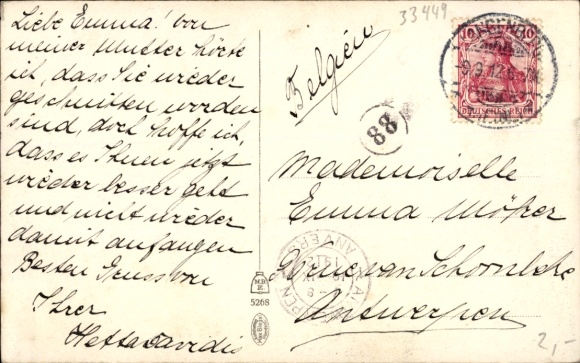 Liebe Emma! von
meiner Mutter hörte
ich, dass Sie wieder
geschnitten worden
sind, doch hoffe ich,
dass es Ihnen jetzt
wieder besser geht
und nicht wieder
damit anfangen
Besten Gruss von
Ihrer
Hetta
33449
Belgien
10 10
DEUTSCHES REICH
88
Mademoiselle
Emma
van
Antwerpen
ANVERS
M.B.
5268
2,-